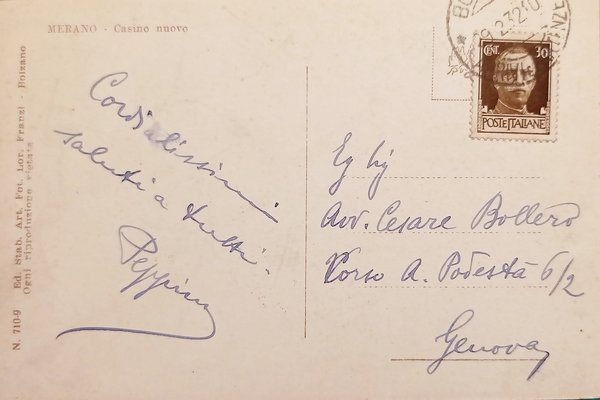 MERANO - Casino nuovo
Cordialissimi
saluti a tutti.
Peppino
N. 710-9 Ed. Stab. Art. Fot. Lor. Franzl - Bolzano
Ogni riproduzione vietata
CENT. 30
POSTE ITALIANE
Eg Sig
Avv. Cesare Bollero
Corso A. Podestà 6/2
Genova